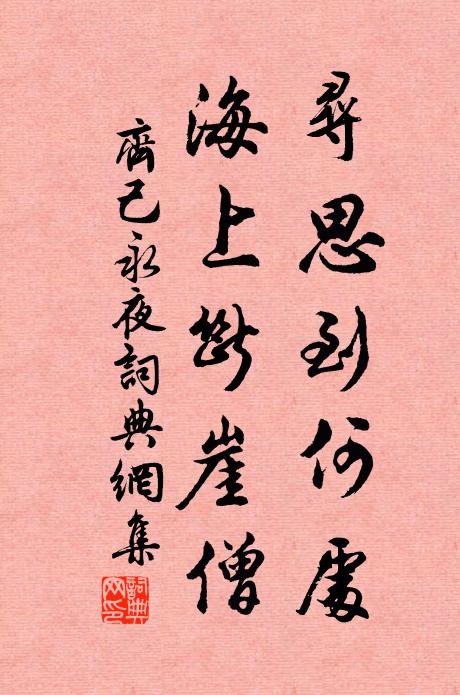 尋思到何處
海上斷崖僧
齊己永夜詞典網集
詞典網印